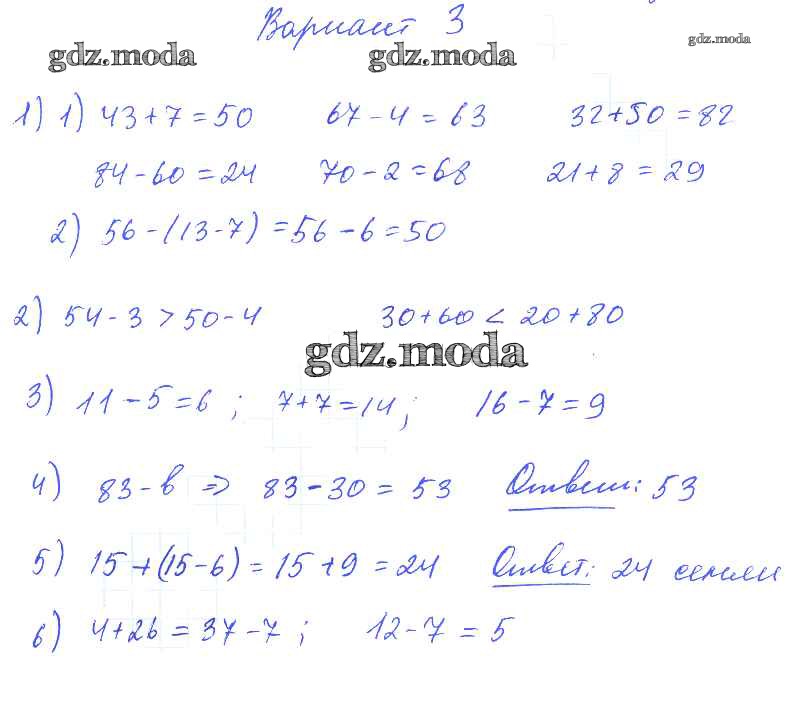 Вариант 3
gdz.moda gdz.moda gdz.moda
1) 1) 43+7=50 67-4=63 32+50=82
84-60=24 70-2=68 21+8=29
2) 56-(13-7)=56-6=50
2) 54-3>50-4 30+60<20+80
gdz.moda
3) 11-5=6; 7+7=14; 16-7=9
4) 83-в => 83-30=53 Ответ: 53
5) 15+(15-6)=15+9=24 Ответ: 24
6) 4+26=37-7; 12-7=5